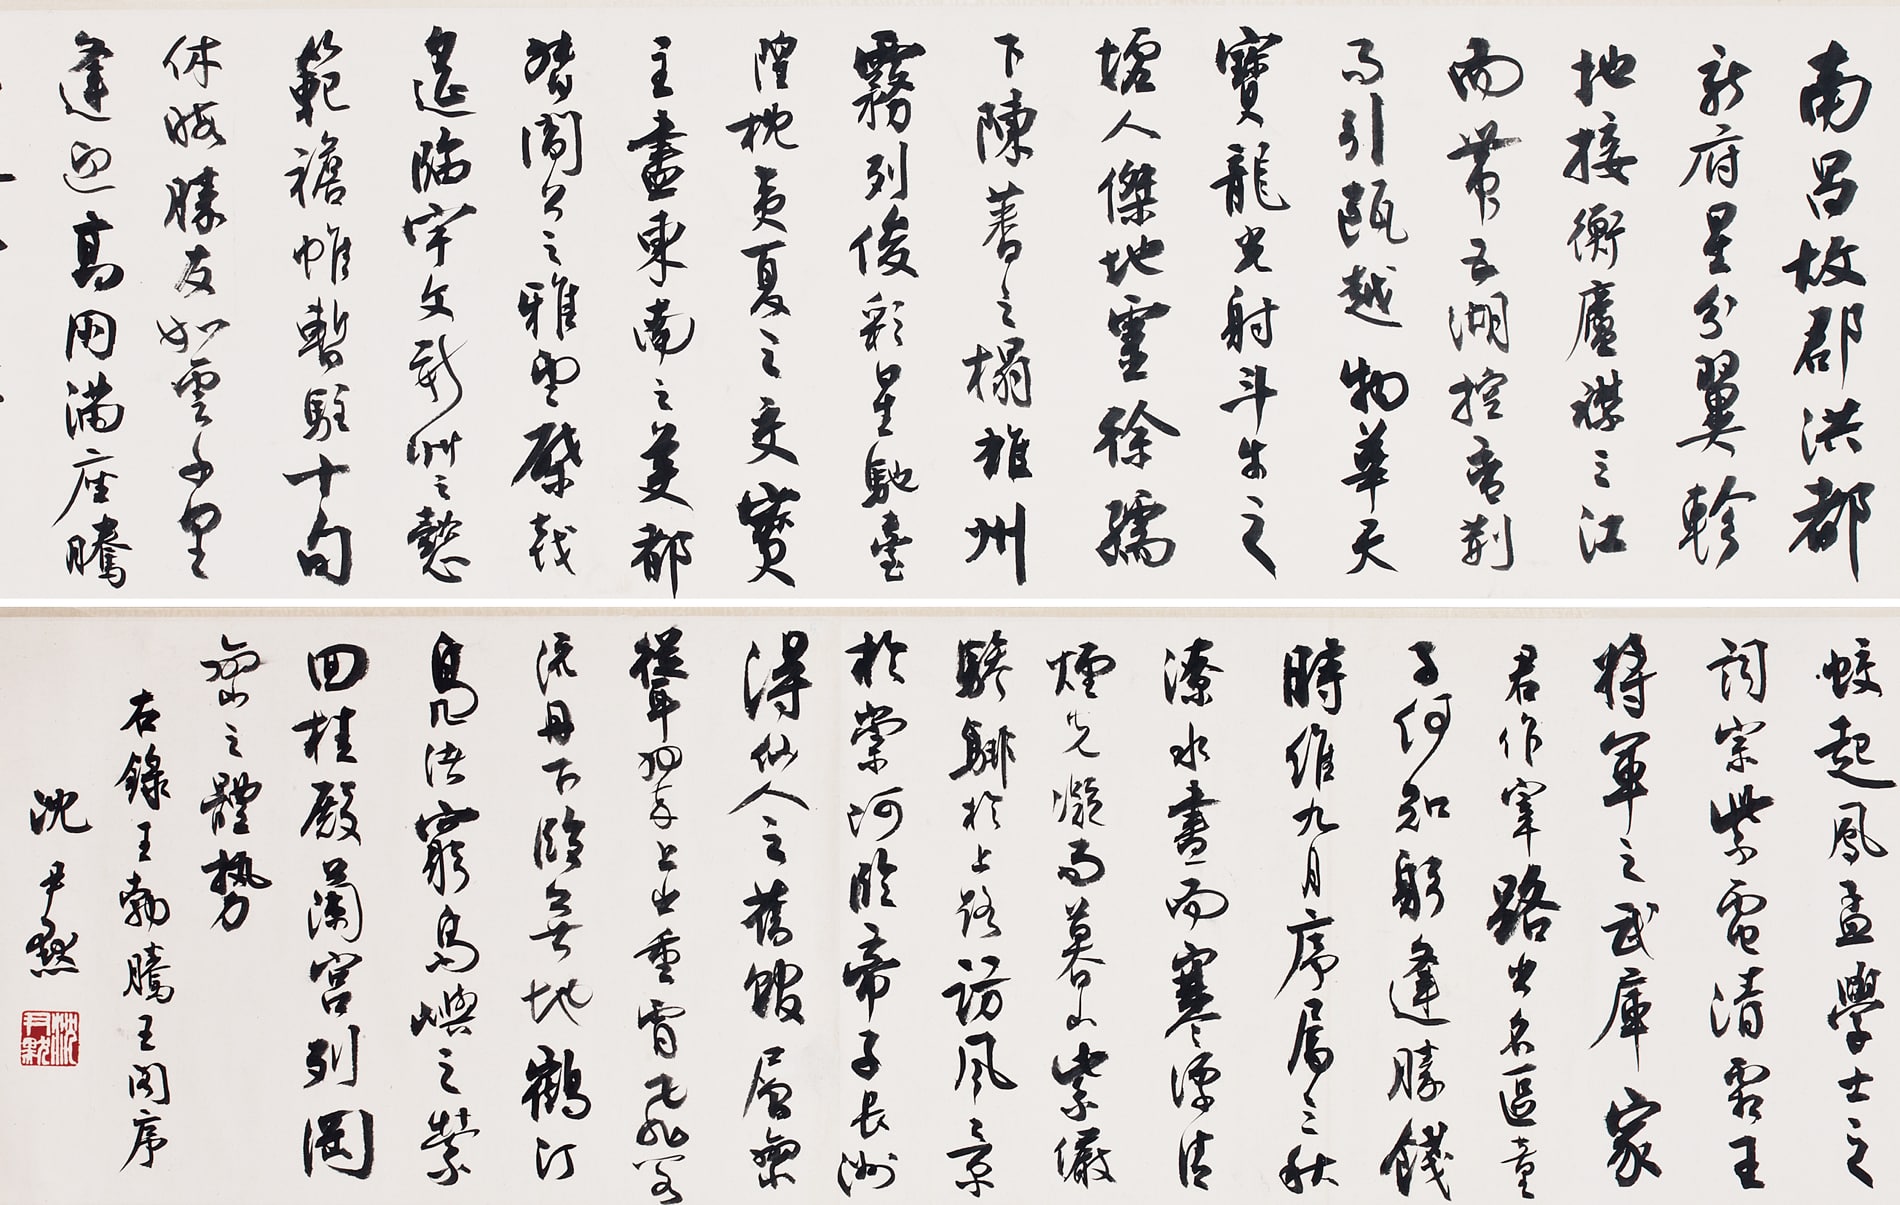 南昌故郡洪都
新府星分翼軫
地接衡廬襟三江
而带五湖控蛮荆
而引甌越物華天
寶龍光射斗牛之
墟人傑地靈徐孺
下陳蕃之榻雄州
霧列俊彩星馳臺
隍枕夷夏之交賓
主盡東南之美都
督閻公之雅望棨戟
遥臨宇文新州之懿
範襜帷暫駐十旬
休暇勝友如雲千里
逢迎高朋滿座騰
蛟起鳳孟學士之
詞宗紫電清霜王
將軍之武庫家
君作宰路出名區童
子何知躬逢勝餞
時維九月序屬三秋
潦水盡而寒潭清
煙光凝而暮山紫儼
驂騑於上路訪風景
於崇阿臨帝子長洲
得仙人之舊館層巒
聳翠上出重霄飛閣
流丹下臨無地鶴汀
鳧渚窮島嶼之縈
回桂殿蘭宫列岡
巒之體勢
右錄王勃騰王閣序
沈尹默
沈尹默